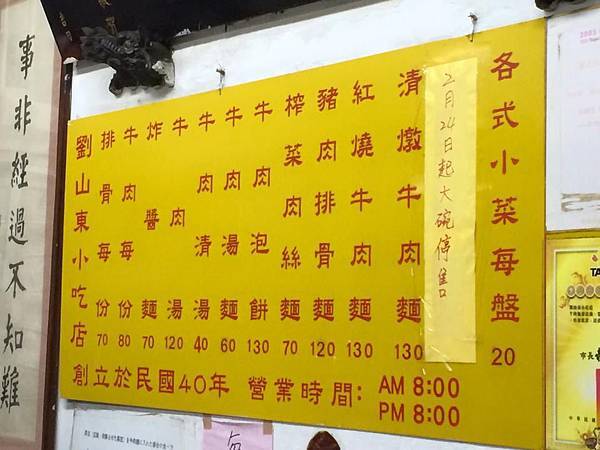 各式小菜每盤 20
2月24日起大碗停售
清燉牛肉麵 130
紅燒牛肉麵 130
豬肉排骨麵 120
榨菜肉絲麵 70
牛肉泡餅 130
牛肉湯麵 60
牛肉清湯 40
牛肉湯 120
炸醬麵 70
牛肉每份 80
排骨每份 70
劉山東小吃店
創立於民國40年 營業時間: AM 8:00
PM 8:00
事非經過不知難
市長